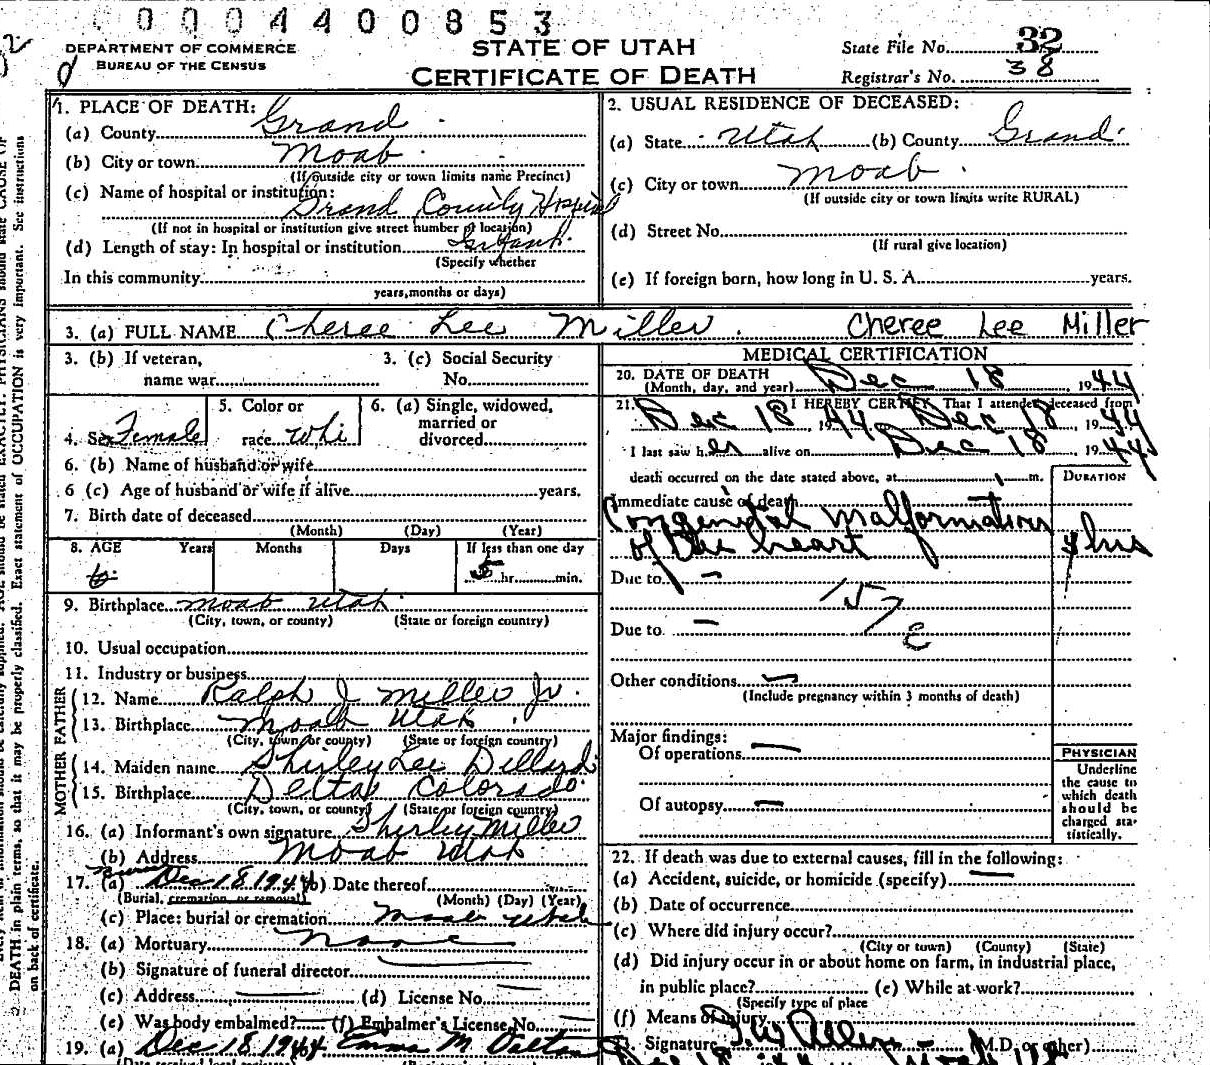 0004400853
DEPARTMENT OF COMMERCE
BUREAU OF THE CENSUS
STATE OF UTAH
CERTIFICATE OF DEATH
State File No. 32
Registrar's No. 38
1. PLACE OF DEATH:
(a) County Grand
(b) City or town Moab
(If outside city or town limits name Precinct)
(c) Name of hospital or institution:
Grand County Hospital
(If not in hospital or institution give street number of location)
(d) Length of stay: In hospital or institution
(Specify whether
In this community
years, months or days)
2. USUAL RESIDENCE OF DECEASED:
(a) State Utah (b) County Grand
(c) City or town Moab
(If outside city or town limits write RURAL)
(d) Street No.
(If rural give location)
(e) If foreign born, how long in U. S. A. years.
3. (a) FULL NAME Cheree Lee Miller Cheree Lee Miller
3. (b) If veteran,
name war
3. (c) Social Security
No.
4. Sex Female
5. Color or
race Whi
6. (a) Single, widowed,
married or
divorced
6. (b) Name of husband or wife
6 (c) Age of husband or wife if alive years.
7. Birth date of deceased
(Month) (Day) (Year)
8. AGE Years Months Days If less than one day
5 hr. min.
9. Birthplace Moab Utah
(City, town, or county) (State or foreign country)
10. Usual occupation
11. Industry or business
FATHER
12. Name Ralph J Miller Jr.
13. Birthplace Moab Utah
(City, town, or county) (State or foreign country)
MOTHER
14. Maiden name Shirley Lee Dillard
15. Birthplace Delta Colorado
(City, town, or county) (State or foreign country)
16. (a) Informant's own signature Shirley Miller
(b) Address Moab Utah
17. (a) Dec 18 1944 (b) Date thereof
(Burial, cremation, or removal) (Month) (Day) (Year)
(c) Place: burial or cremation Moab Utah
18. (a) Mortuary None
(b) Signature of funeral director
(c) Address (d) License No.
(e) Was body embalmed? (f) Embalmer's License No.
19. (a) Dec 18 1944 Emma M. Dalton
MEDICAL CERTIFICATION
20. DATE OF DEATH
(Month, day, and year) Dec 18, 1944
21. I HEREBY CERTIFY, That I attended deceased from
Dec 18, 44 Dec 18, 1944
I last saw her alive on Dec 18, 1944
death occurred on the date stated above, at m.
DURATION
Immediate cause of death
Congenital malformation
of the heart
Due to –
157
Due to –
Other conditions
(Include pregnancy within 3 months of death)
Major findings:
Of operations
Of autopsy
PHYSICIAN
Underline
the cause to
which death
should be
charged sta-
tistically.
22. If death was due to external causes, fill in the following:
(a) Accident, suicide, or homicide (specify)
(b) Date of occurrence
(c) Where did injury occur?
(City or town) (County) (State)
(d) Did injury occur in or about home on farm, in industrial place,
in public place? (e) While at work?
(Specify type of place
(f) Means of injury
Signature Allen (M.D. or other)
DEATH in plain terms, so that it may be properly classified. Exact statement of OCCUPATION is very important. See instructions
on back of certificate.